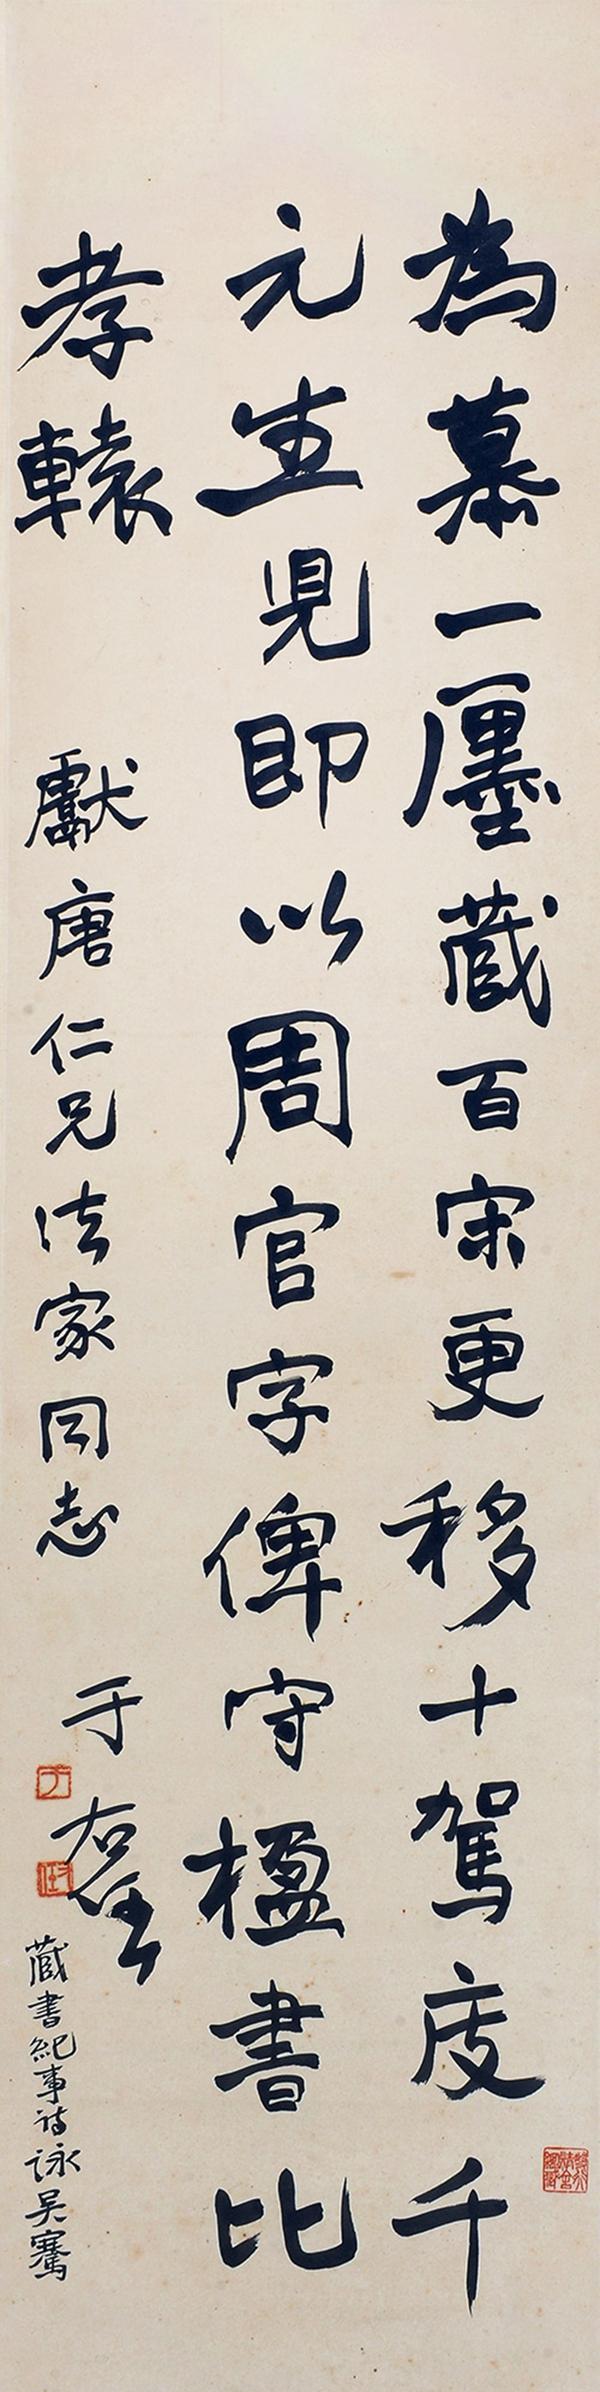 為慕一廛藏百宋更移十駕庋千
元生兒即以周官字俾守楹書比
孝轅
獻唐仁兄法家同志
于右任
藏書紀事詩詠吳騫